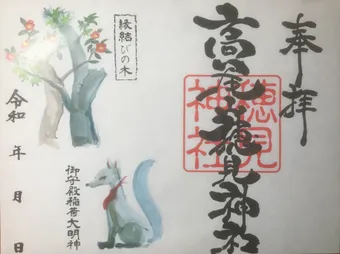 奉拝
高尾穂見神社
穂見
神社
縁結びの木
御守殿稲荷大明神
令和 年 月 日